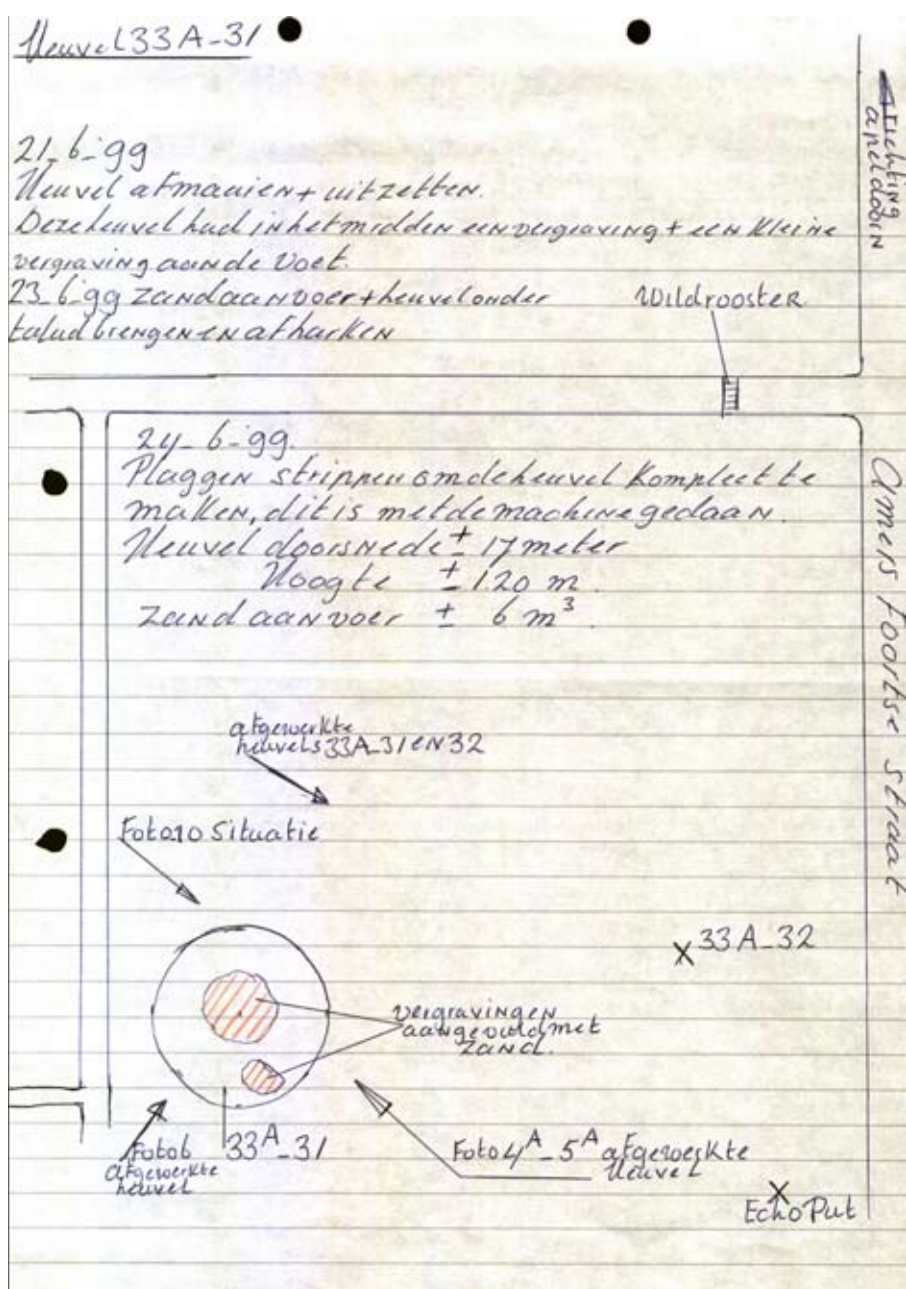 Heuvel 33A-31
21-6-99
Heuvel afmaaien + uitzetten.
Deze heuvel had in het midden een vergraving + een kleine
vergraving aan de voet.
23-6-99 zand aanvoer + heuvel onder
talud brengen en afharken
Richting
apeldoorn
Wildrooster
24-6-99.
Plaggen strippen om de heuvel kompleet te
maken, dit is met de machine gedaan.
Heuvel doorsnede ± 17 meter
Hoogte ± 1.20 m.
zand aanvoer ± 6 m³.
Amersfoortse straat
afgewerkte
heuvels 33A-31 en 32
Foto 10 Situatie
33A-32
vergravingen
aangevuld met
zand.
Foto 6
afgewerkte
heuvel
33A-31
Foto 4A-5A afgewerkte
Heuvel
Echo Put